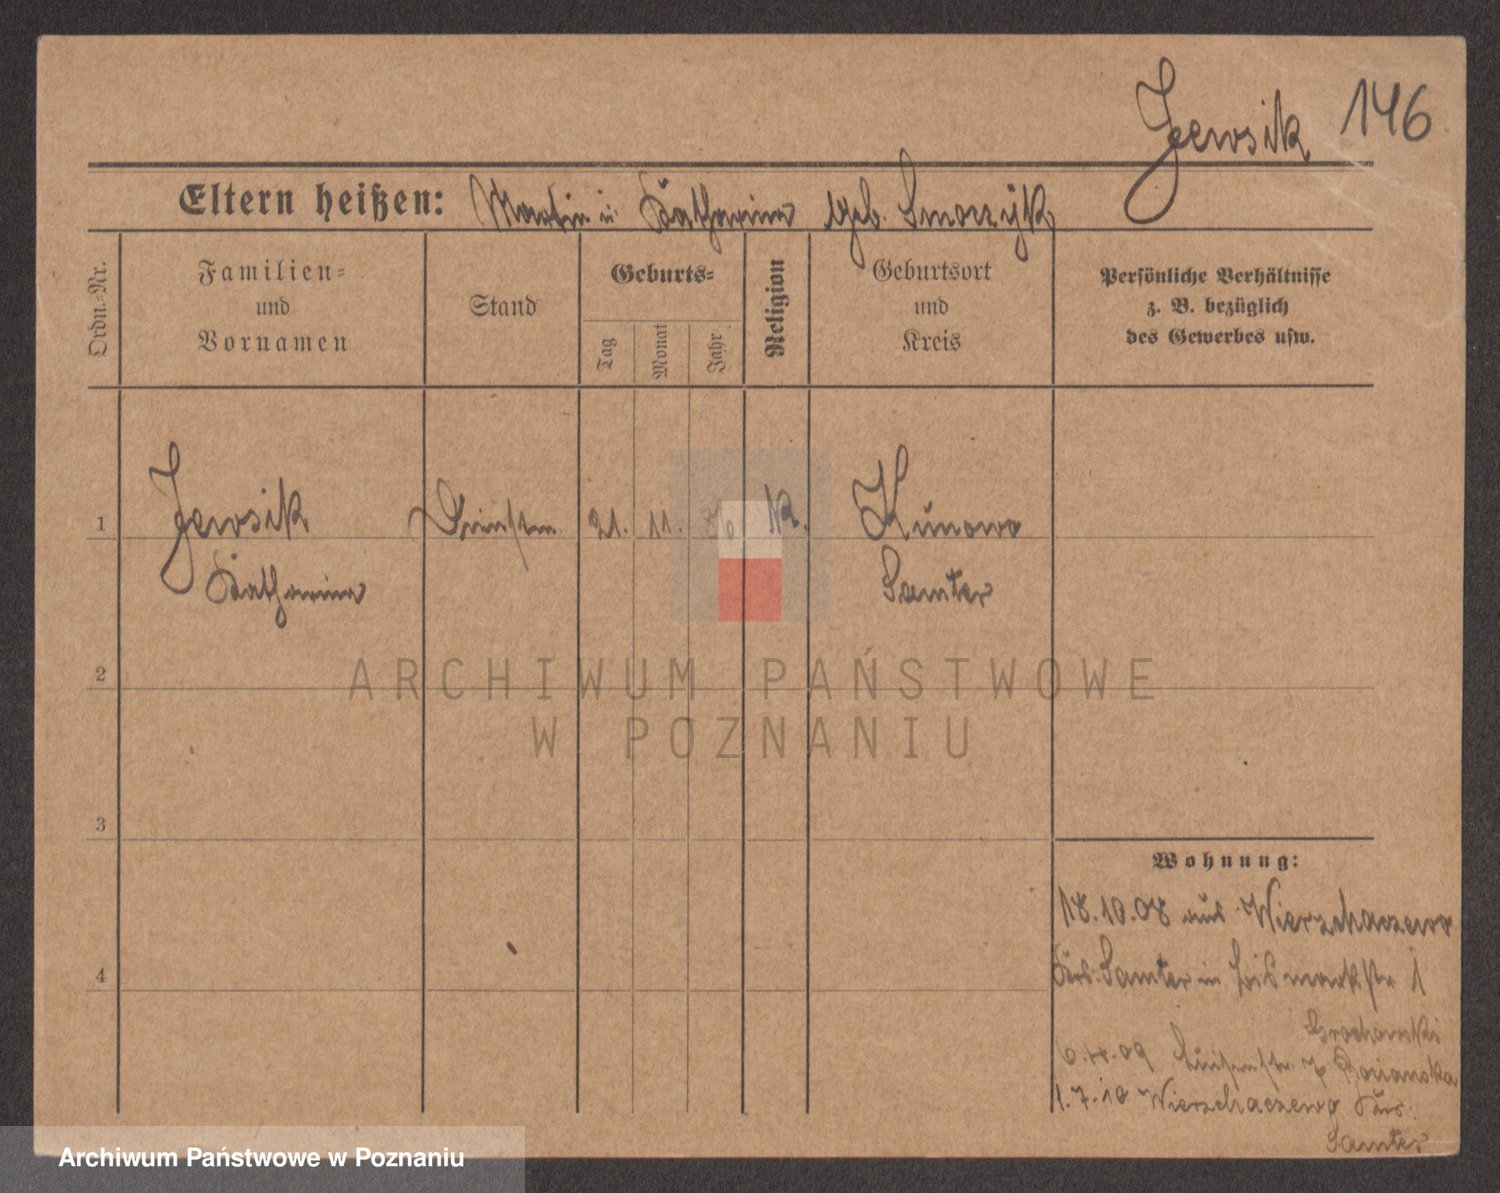 Jewsik 146
Eltern heißen: Martin u. Katharina geb. Smoczyk
Ordn.-Nr.
Familien-
und
Vornamen
Stand
Geburts-
Tag
Monat
Jahr
Religion
Geburtsort
und
Kreis
Persönliche Verhältnisse
z. B. bezüglich
des Gewerbes usw.
1 Jewsik 21. 11. K. Kunowo
Katharina Samter
2
ARCHIWUM PAŃSTWOWE
W POZNANIU
3
Wohnung:
18.10.08 aus Wierzchaczewo
4
Krs. Samter in Bismarckstr 1
Grochowski
09 Luisenstr. 7
1.7.10 Wierzchaczewo Krs.
Samter
Archiwum Państwowe w Poznaniu